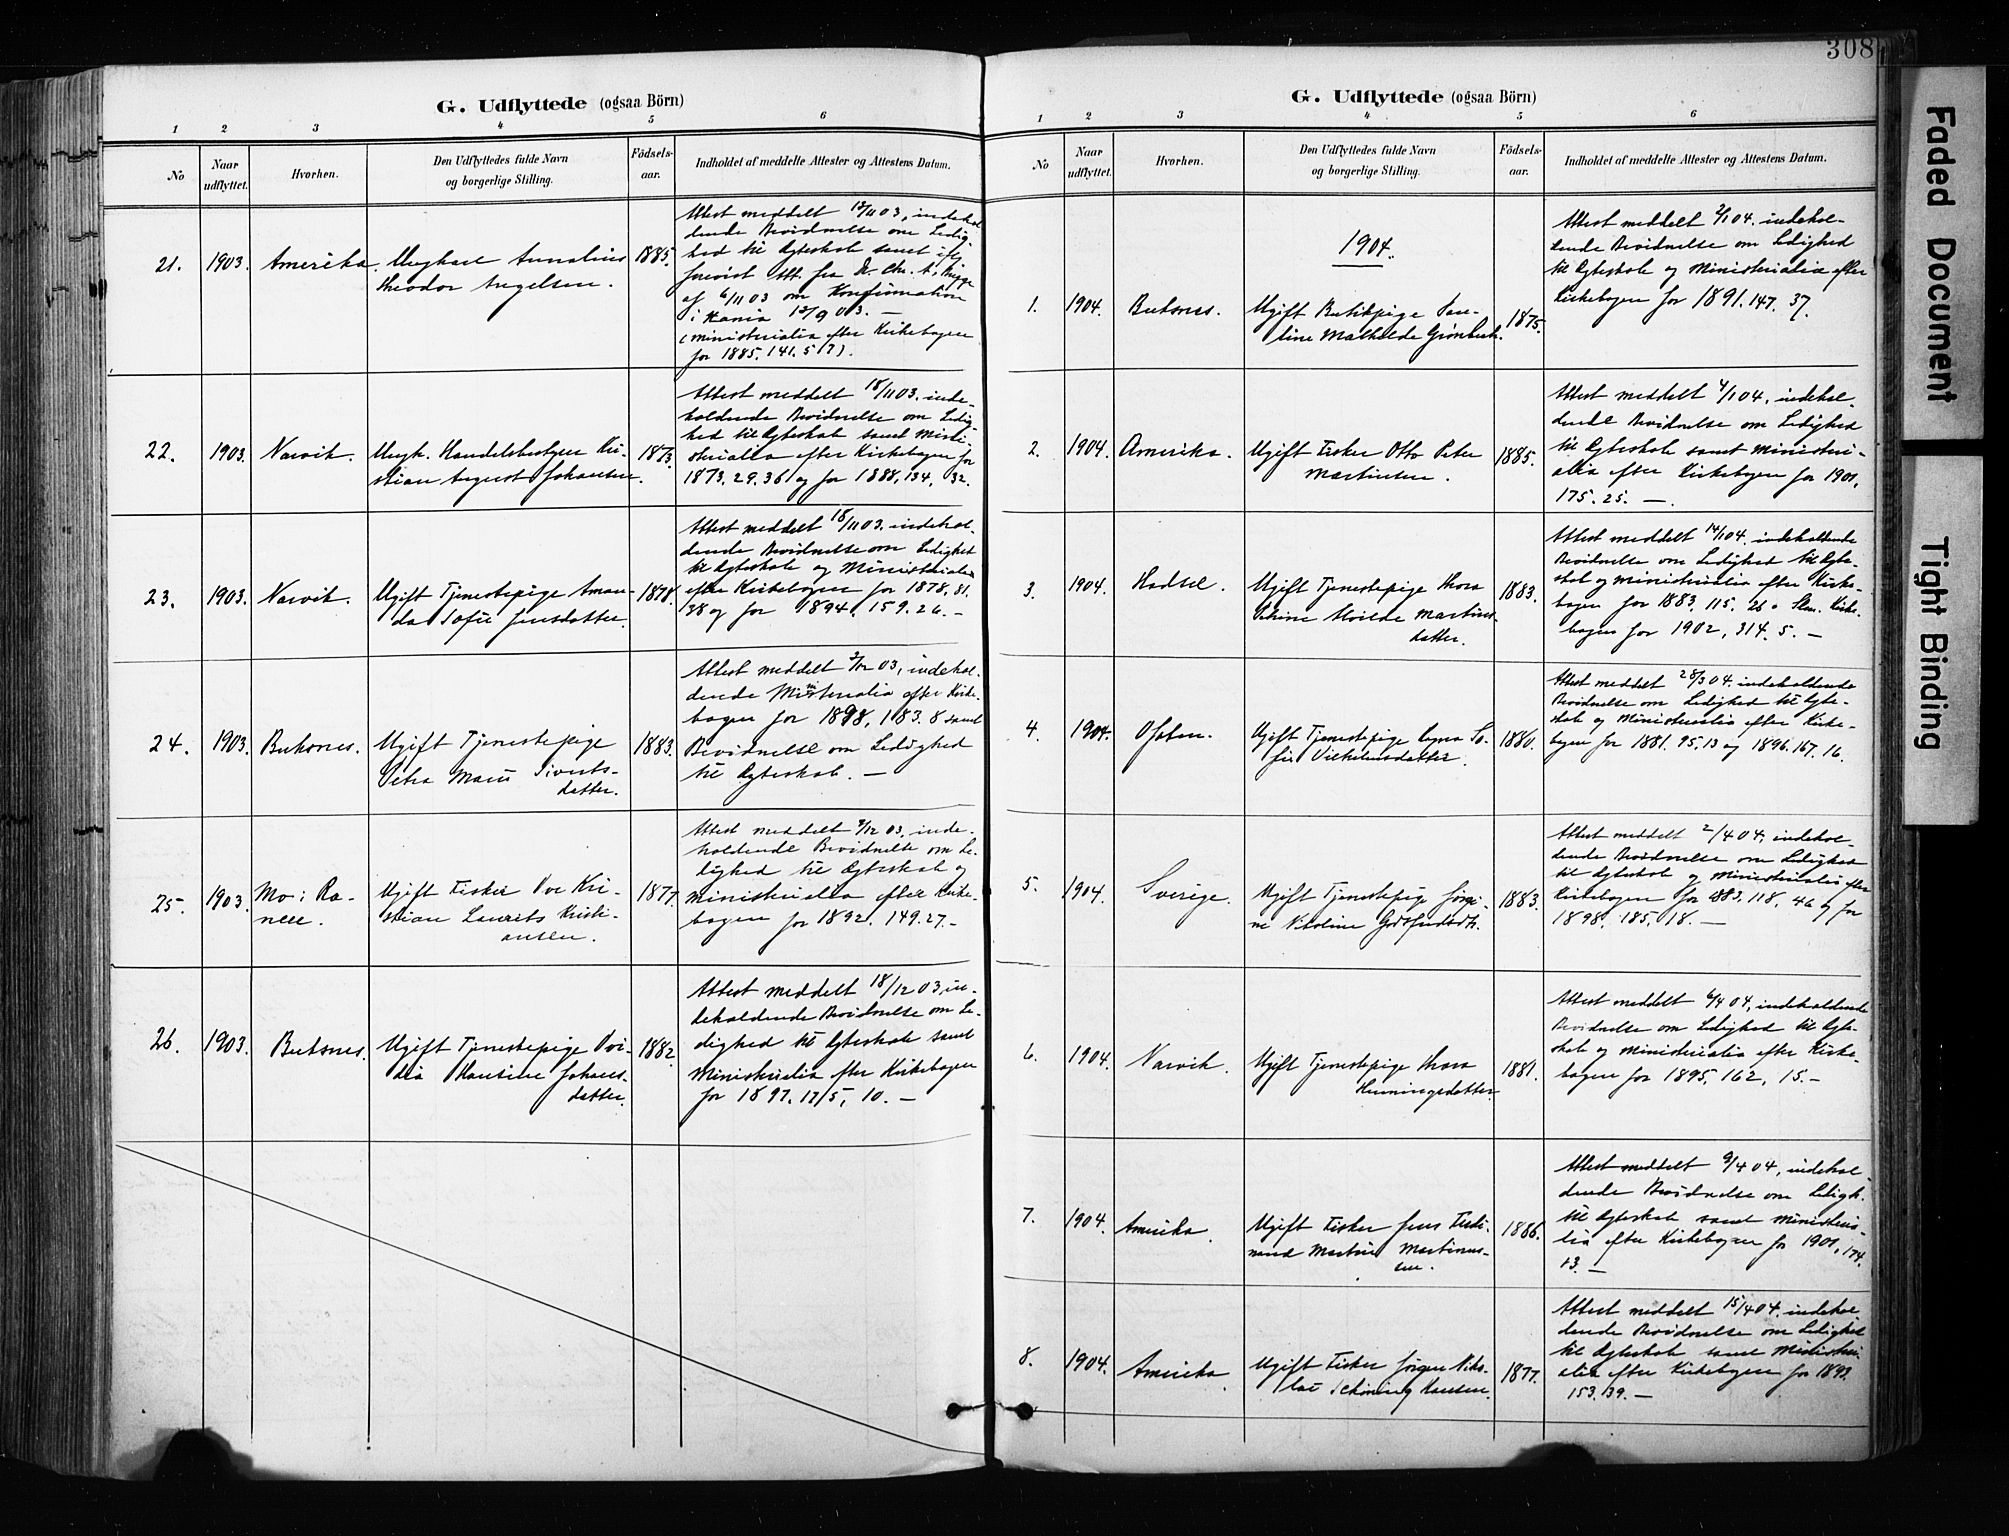 308
G. Udflyttede (ogsaa Börn)
1 2 3 4 5 6
No
Naar udflyttet.
Hvorhen.
Den Udflyttedes fulde Navn
og borgerlige Stilling.
Födsels-
aar.
Indholdet af meddelte Attester og Attestens Datum.
21. 1903. Amerika. Ungkarl Annanius
Theodor Angelsen. 1885.
Attest meddelt 12/11 03, indehol-
dende Bevidnelse om Ledig-
hed til Ægteskab samt iflg.
forevist Att. fra
af 6/11 03 om Konfirmation
i Kania 13/9 03. —
(ministerialia efter Kirkebogen
for 1885. 141. 5 7).
22. 1903. Narvik. Ungk. Handelsbestyrer Kri-
stian August Johansen. 1873.
Attest meddelt 18/11 03. inde-
holdende Bevidnelse om Ledig-
hed til Ægteskab samt Mini-
sterialia efter Kirkebogen for
1873. 29. 36 og for 1888, 134, 32.
23. 1903. Narvik. Ugift Tjenestepige Aman-
da Sofie Jensdatter. 1878.
Attest meddelt 18/11 03. indehol-
dende Bevidnelse om Ledighet
til Ægteskab og Ministerialia
efter Kirkebogen for 1878, 81.
38 og for 1894. 159. 26. —
24. 1903. Buksnes. Ugift Tjenestepige
Petra Marie Siverts-
datter. 1883.
Attest meddelt 3/12 03, indehol-
dende Ministerialia efter Kirke-
bogen for 1898, 183. 8 samt
Bevidnelse om Ledighed
til Ægteskab. —
25. 1903. Mo i Ra-
nen. Ugift Fisker Ove Kri-
stian Laurits Kristi-
ansen. 1877.
Attest meddelt 9/12 03, inde-
holdende Bevidnelse om Le-
dighed til Ægteskab og
Ministerialia efter Kirke-
bogen for 1892. 149. 27. —
26. 1903. Buksnes. Ugift Tjenestepige Ovi-
dia Hansine Johans-
datter. 1882
Attest meddelt 18/12 03, in-
deholdende Bevidnelse om Le-
dighed til Ægteskab samt
Ministerialia efter Kirkebogen
for 1897. 175, 10. —
G. Udflyttede (ogsaa Börn)
1 2 3 4 5 6
No
Naar udflyttet.
Hvorhen.
Den Udflyttedes fulde Navn
og borgerlige Stilling.
Födsels-
aar.
Indholdet af meddelte Attester og Attestens Datum.
1904.
1. 1904. Buksnes. Ugift Butikpige Pau-
line Mathilde Grönbech. 1875.
Attest meddelt 2/1 04. indehol-
dende Bevidnelse om Ledighed
til Ægteskab og Ministerialia efter
Kirkebogen for 1891. 147. 37.
2. 1904. Amerika. Ugift Fisker Otto Peter
Martinsen. 1885.
Attest meddelt 4/1 04, indehol-
dende Bevidnelse om Ledighed
til Ægteskab samt Ministeri-
alia efter Kirkebogen for 1901,
175. 25. —
3. 1904. Hadsel. Ugift Tjenestepige Thora
Petrine Alvilde Martins-
datter. 1883.
Attest meddelt 14/1 04. indeholdende
Bevidnelse om Ledighed til Ægte-
skab og Ministerialia efter Kirke-
bogen for 1883, 115, 26 Kirke-
bogen for 1902, 314. 5. —
4. 1904. Ofoten. Ugift Tjenestepige Lyna So-
fie Vilhelmsdatter. 1880.
Attest meddelt 28/3 04. indeholdende
Bevidnelse om Ledighed til Ægte-
skab og Ministerialia efter Kirke-
bogen for 1881. 95. 13 og 1896. 167. 16.
5. 1904. Sverige. Ugift Tjenestepige Jörgi-
ne Nikoline Godtfredsdtr. 1883.
Attest meddelt 2/4 04, indehol-
dende Bevidnelse om Ledighed
til Ægteskab og Ministerialia efter
Kirkebogen for 1883, 118, 46 og for
1898, 185, 18. —
6. 1904. Narvik. Ugift Tjenestepige Thora
Henningsdatter 1881.
Attest meddelt 6/4 04, indeholdende
Bevidnelse om Ledighed til Ægte-
skab og Ministerialia efter Kirke-
bogen for 1895, 162, 15. —
7. 1904. Amerika. Ugift Fisker Jens Ferdi-
nand Martin Martinus-
sen. 1886.
Attest meddelt 9/4 04, indehol-
dende Bevidnelse om Ledigh.
til Ægteskab samt Ministeria-
lia efter Kirkebogen for 1901, 174.
13. —
8. 1904. Amerika. Ugift Fisker Jörgen Niko-
lai Schöning Hansen. 1877.
Attest meddelt 15/4 04, indehol-
dende Bevidnelse om Ledighed
til Ægteskab samt Ministeri-
alia efter Kirkebogen for 1893.
153. 39. —
Faded Document
Tight Binding